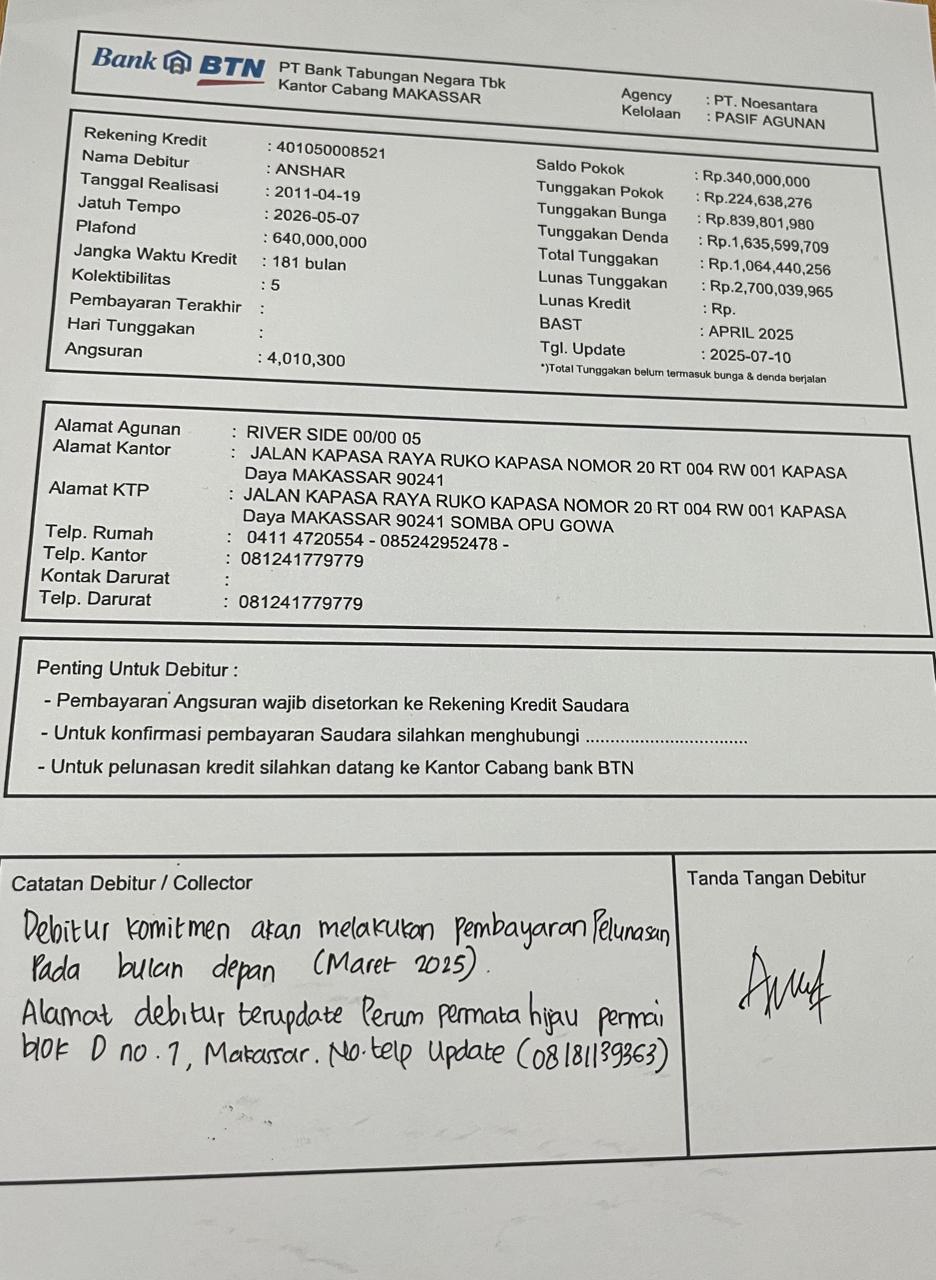 Bank BTN PT Bank Tabungan Negara Tbk
Kantor Cabang MAKASSAR
Agency : PT. Noesantara
Kelolaan : PASIF AGUNAN
Rekening Kredit : 401050008521
Nama Debitur : ANSHAR
Tanggal Realisasi : 2011-04-19
Jatuh Tempo : 2026-05-07
Plafond : 640,000,000
Jangka Waktu Kredit : 181 bulan
Kolektibilitas : 5
Pembayaran Terakhir :
Hari Tunggakan :
Angsuran : 4,010,300
Saldo Pokok : Rp.340,000,000
Tunggakan Pokok : Rp.224,638,276
Tunggakan Bunga : Rp.839,801,980
Tunggakan Denda : Rp.1,635,599,709
Total Tunggakan : Rp.1,064,440,256
Lunas Tunggakan : Rp.2,700,039,965
Lunas Kredit : Rp.
BAST : APRIL 2025
Tgl. Update : 2025-07-10
*)Total Tunggakan belum termasuk bunga & denda berjalan
Alamat Agunan : RIVER SIDE 00/00 05
Alamat Kantor : JALAN KAPASA RAYA RUKO KAPASA NOMOR 20 RT 004 RW 001 KAPASA
Daya MAKASSAR 90241
Alamat KTP : JALAN KAPASA RAYA RUKO KAPASA NOMOR 20 RT 004 RW 001 KAPASA
Daya MAKASSAR 90241 SOMBA OPU GOWA
Telp. Rumah : 0411 4720554 - 085242952478 -
Telp. Kantor : 081241779779
Kontak Darurat :
Telp. Darurat : 081241779779
Penting Untuk Debitur :
- Pembayaran Angsuran wajib disetorkan ke Rekening Kredit Saudara
- Untuk konfirmasi pembayaran Saudara silahkan menghubungi .................................
- Untuk pelunasan kredit silahkan datang ke Kantor Cabang bank BTN
Catatan Debitur / Collector
Debitur komitmen akan melakukan pembayaran Pelunasan
Pada bulan depan (Maret 2025).
Alamat debitur terupdate Perum permata hijau permai
blok D no. 7, Makassar. No. telp Update (08181139363)
Tanda Tangan Debitur